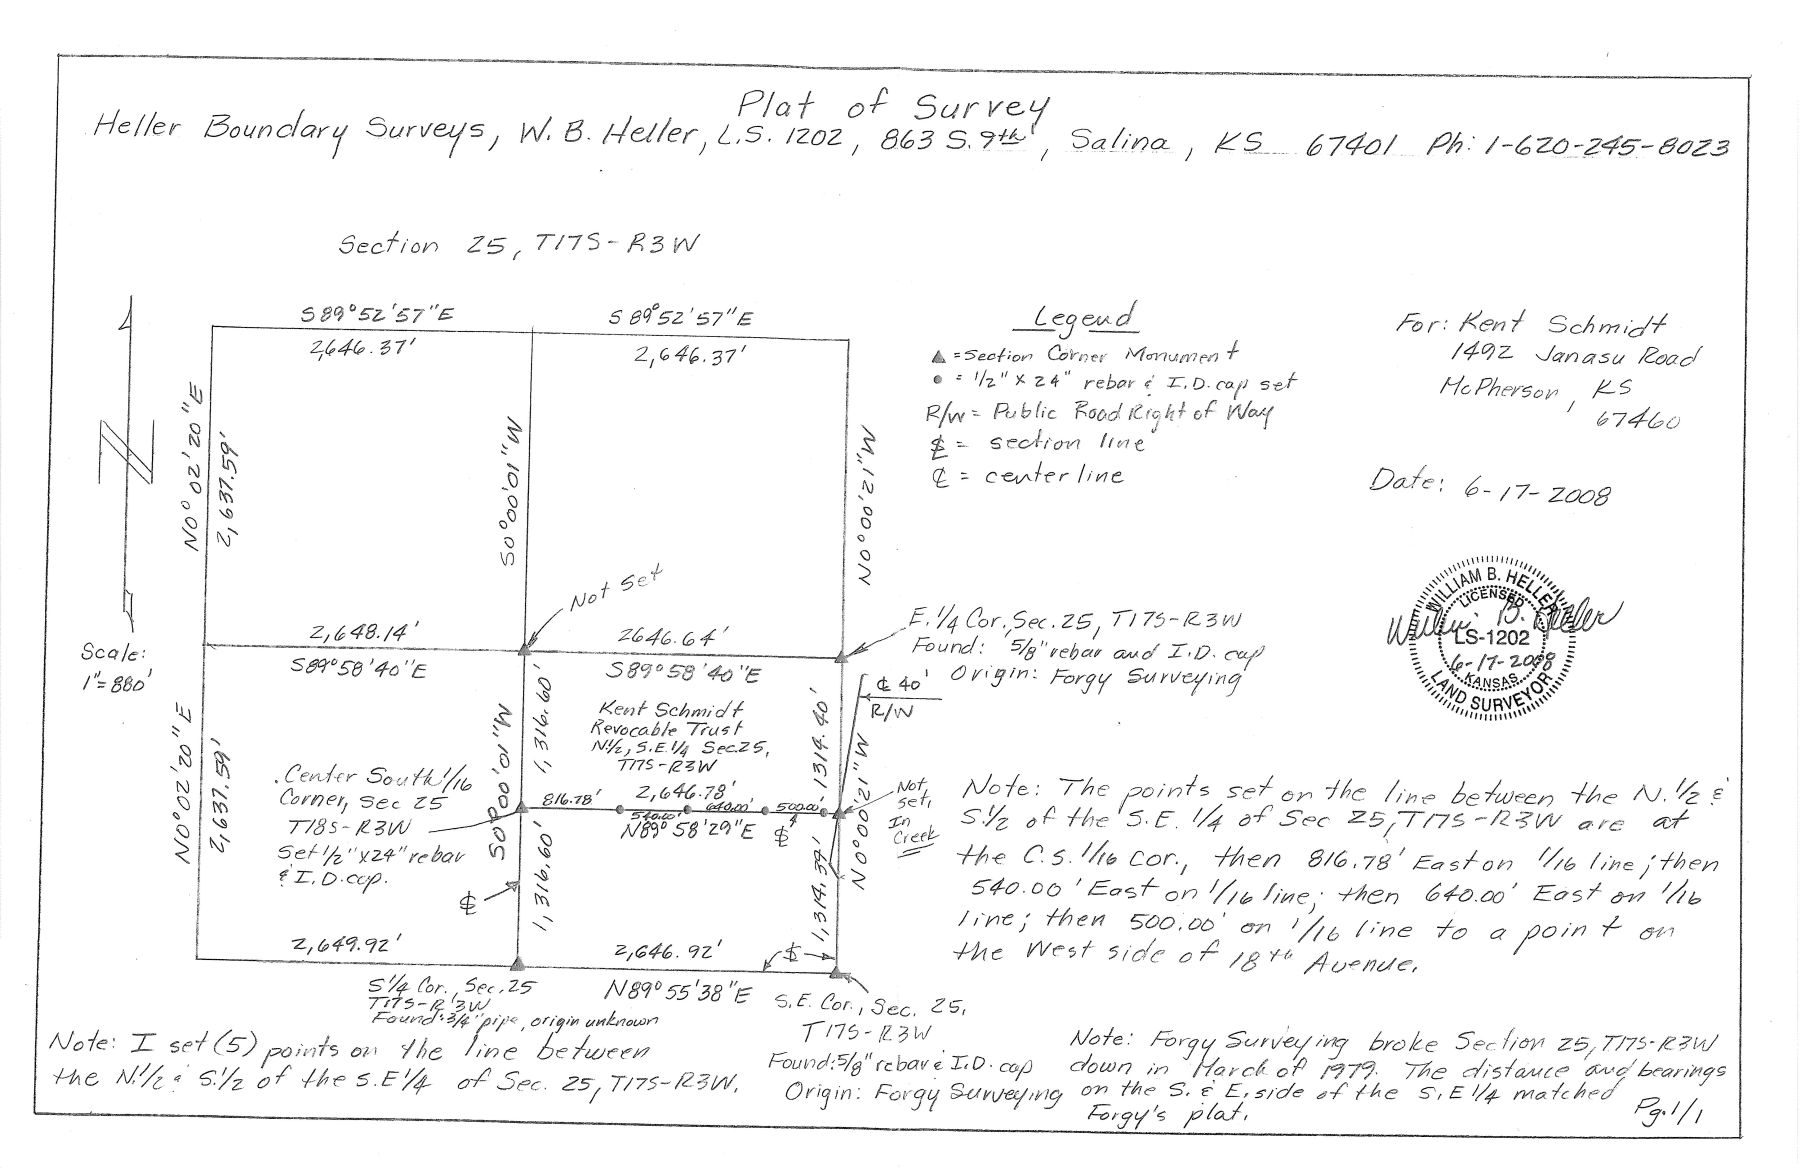 Plat of Survey
Heller Boundary Surveys, W. B. Heller, L.S. 1202, 863 S. 9th, Salina, KS 67401 Ph: 1-620-245-8023
Section 25, T17S-R3W
S89°52'57"E
2,646.37'
S89°52'57"E
2,646.37'
N0°02'20"E
2,637.59'
S0°00'01"W
N0°00'21"W
Scale:
1"=880'
Not Set
2,648.14'
S89°58'40"E
2646.64'
S89°58'40"E
N0°02'20"E
2,637.59'
S0°00'01"W
1,316.60'
Kent Schmidt
Revocable Trust
N1/2, S.E.1/4 Sec.25,
T17S-R3W
1314.40'
N0°00'21"W
℄ 40'
R/W
Center South 1/16
Corner, Sec 25
T18S-R3W
Set 1/2"x24" rebar
& I.D. cap.
816.78'
2,646.78'
540.00'
640.00'
500.00'
N89°58'29"E
Not
set,
In
Creek
1,316.60'
1,314.39'
2,649.92'
2,646.92'
N89°55'38"E
S1/4 Cor., Sec.25
T17S-R3W
Found: 3/4" pipe, origin unknown
S.E. Cor., Sec. 25,
T17S-R3W
Found: 5/8" rebar & I.D. cap
Origin: Forgy Surveying
Legend
▲ = Section Corner Monument
● = 1/2" x 24" rebar & I.D. cap set
R/W = Public Road Right of Way
= section line
℄ = centerline
For: Kent Schmidt
1492 Janasu Road
McPherson, KS
67460
Date: 6-17-2008
WILLIAM B. HELLER
LICENSED
LS-1202
6-17-2008
KANSAS
LAND SURVEYOR
William B. Heller
E. 1/4 Cor., Sec. 25, T17S-R3W
Found: 5/8" rebar and I.D. cap
Origin: Forgy Surveying
Note: The points set on the line between the N.1/2 &
S.1/2 of the S.E. 1/4 of Sec 25, T17S-R3W are at
the C.S. 1/16 Cor., then 816.78' East on 1/16 line; then
540.00' East on 1/16 line; then 640.00' East on 1/16
line; then 500.00' on 1/16 line to a point on
the West side of 18th Avenue.
Note: I set (5) points on the line between
the N.1/2 & S.1/2 of the S.E 1/4 of Sec. 25, T17S-R3W.
Note: Forgy Surveying broke Section 25, T17S-R3W
down in March of 1979. The distance and bearings
on the S. & E. side of the S.E 1/4 matched
Forgy's plat.
Pg. 1/1